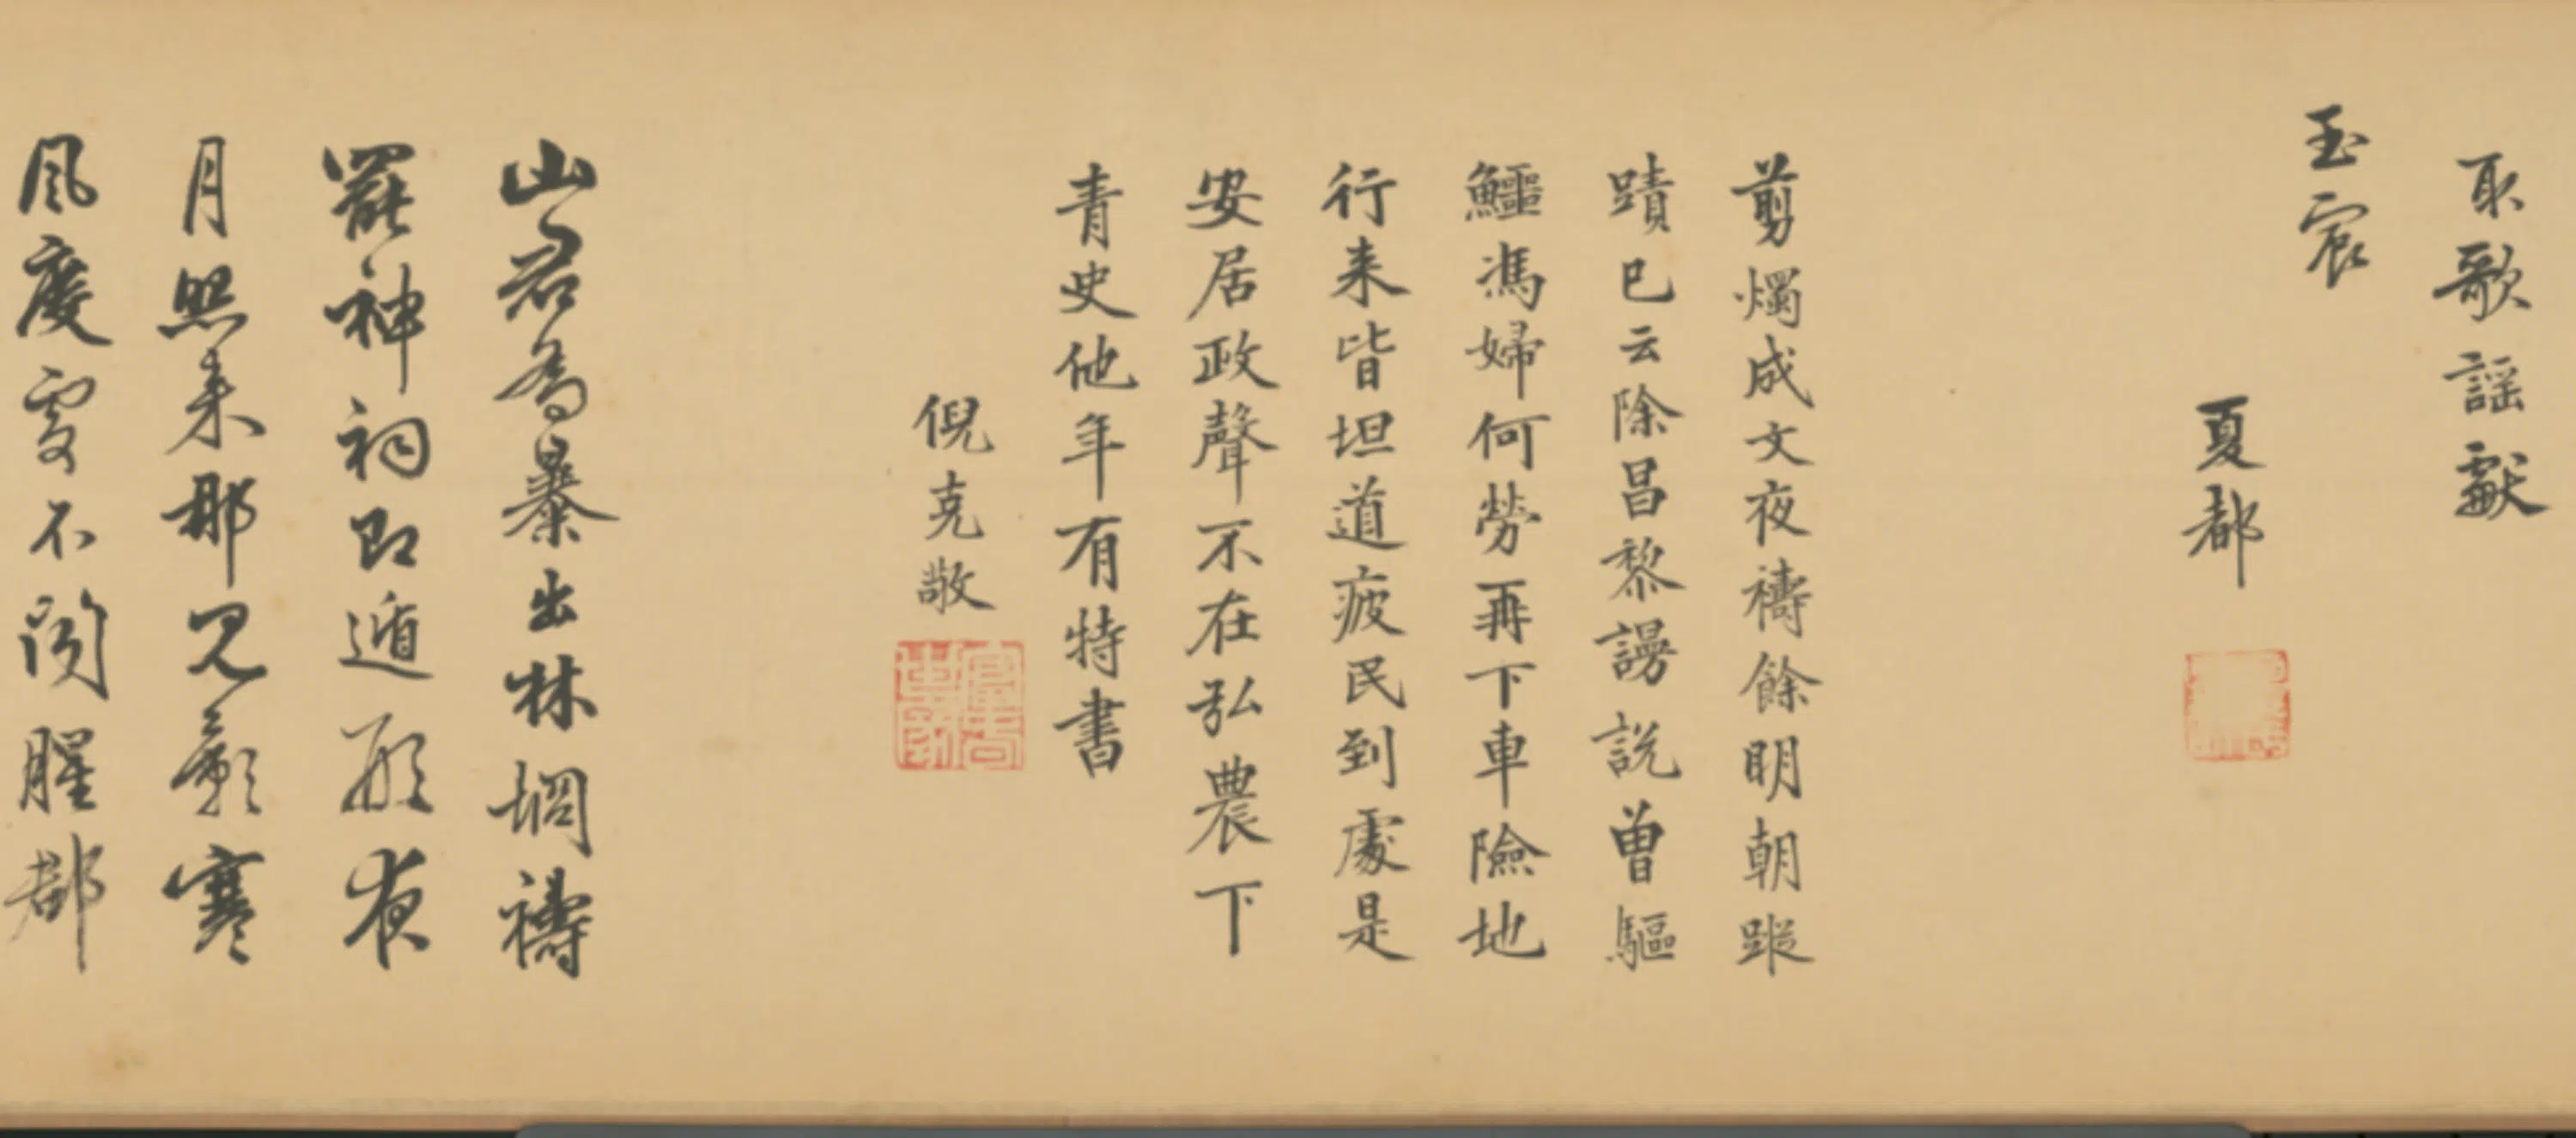 取歌謡獻
玉宸
夏都
剪燭成文夜禱餘明朝蹤
蹟已云除昌黎謾說曾驅
鱷馮婦何勞再下車險地
行来皆坦道疲民到處是
安居政聲不在弘農下
青史他年有特書
倪克敬
山君為暴出林坰禱
罷神祠即遁形夜
月照来那見彰寒
風度處不聞腥都